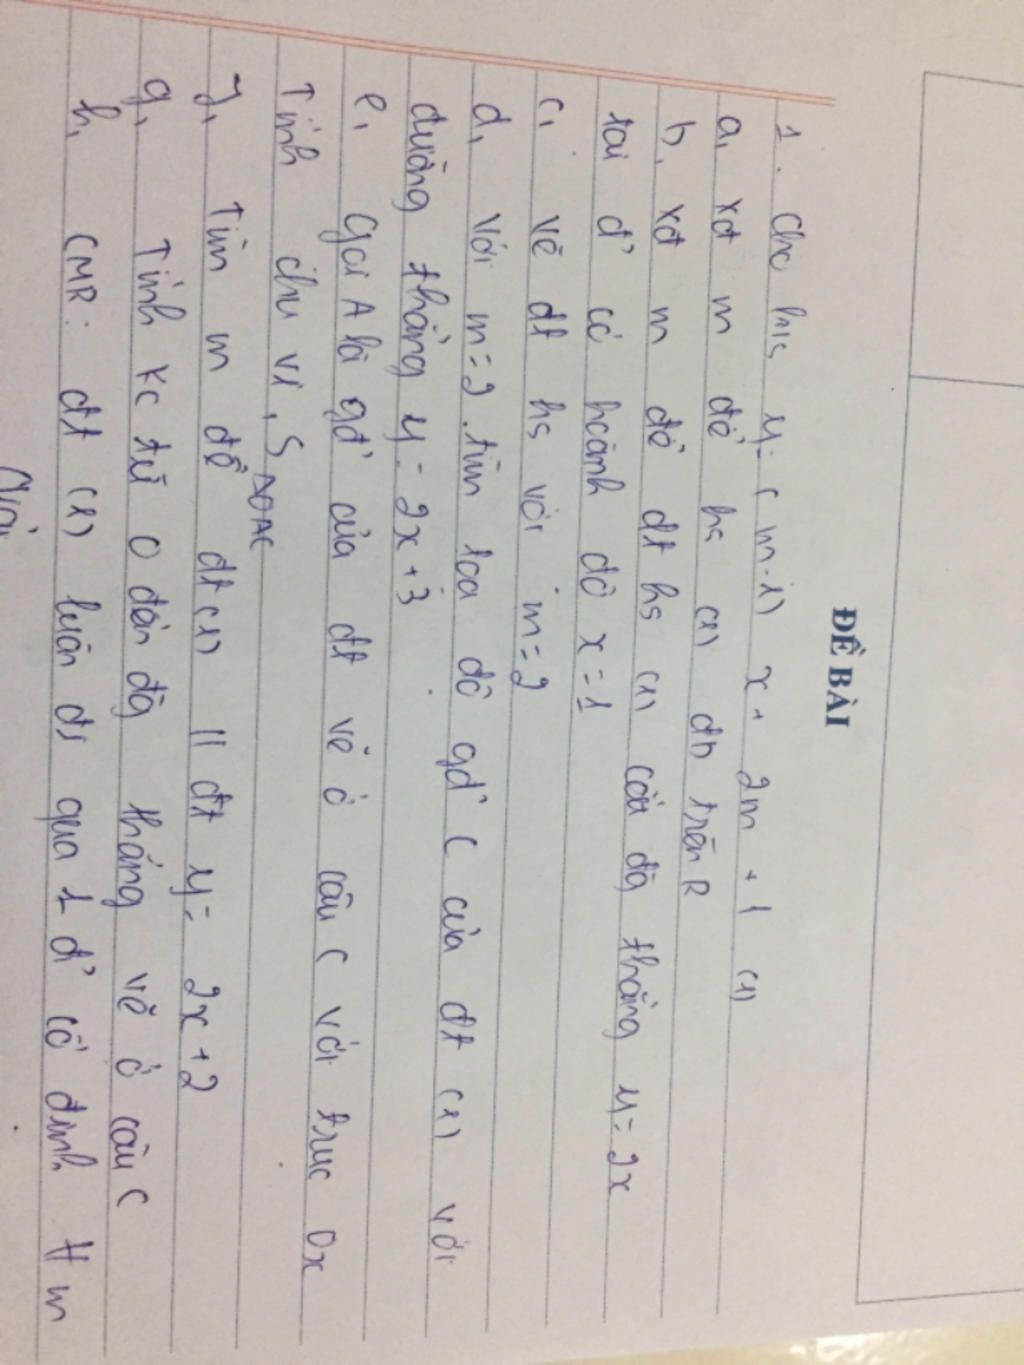 ĐỀ BÀI
1. Cho hs y = (m-1) x + 2m + 1 (1)
a, xđ m để hs (1) đb trên R
b, xđ m để đt hs (1) cắt đg thẳng y = 2x
tại đ' có hoành độ x = 1
c, vẽ đt hs với m = 2
d, với m = 2. tìm toạ độ gđ' C của đt (1) với
đường thẳng y = 2x + 3
e, Gọi A là gđ' của đt vẽ ở câu c với trục Ox
Tính chu vi, S ΔOAC
f, Tìm m để đt (1) // đt y = 2x + 2
g, Tính kc từ O đến đg thẳng vẽ ở câu c
h, CMR: đt (1) luôn đi qua 1 đ' cố định ∀ m